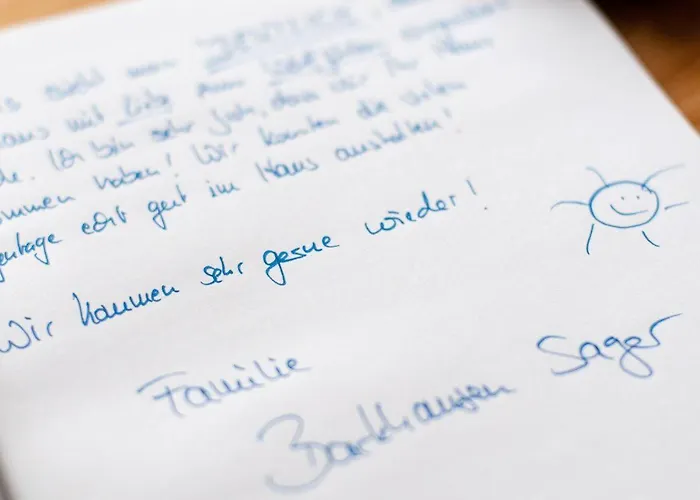 sieht man
aus mit Liebe zum
de. Ich bin sehr froh, dass wir Ihr Haus
ommen haben! Wir konnten die vielen
gentage echt gut im Haus aushalten!
Wir kommen sehr gerne wieder!
Familie
Barkhausen Sager